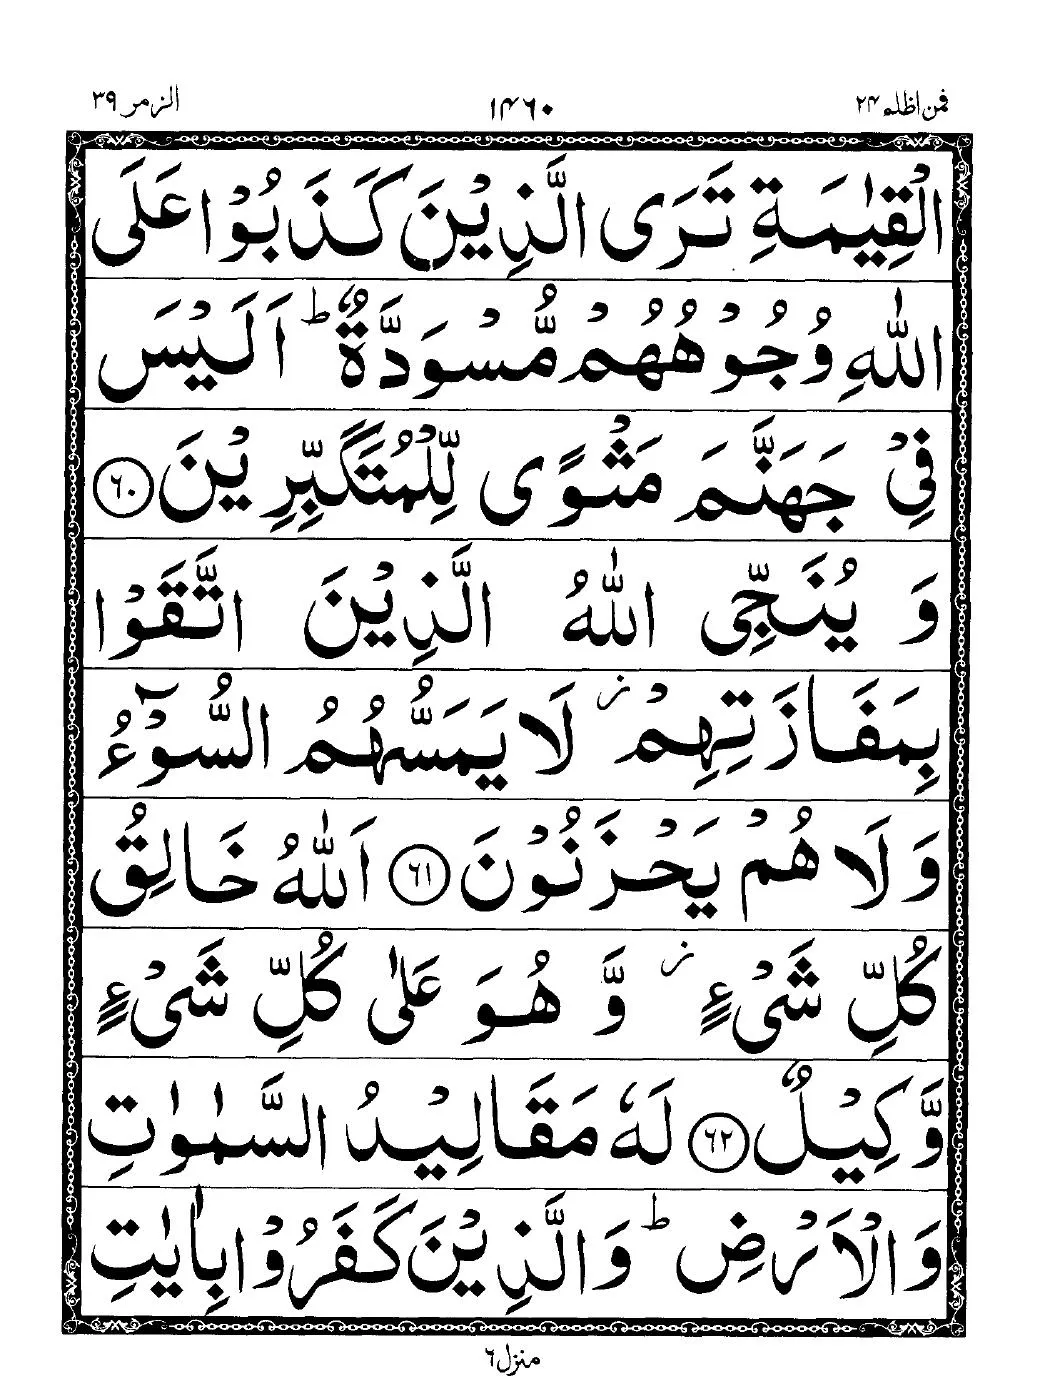 فمن اظلم ٢٤ ١٤٦٠ الزمر ٣٩
الْقِيٰمَةِ تَرَى الَّذِيْنَ كَذَبُوْا عَلَى
اللّٰهِ وُجُوْهُهُمْ مُّسْوَدَّةٌ ؕ اَلَيْسَ
فِيْ جَهَنَّمَ مَثْوًى لِّلْمُتَكَبِّرِيْنَ ٦٠
وَ يُنَجِّى اللّٰهُ الَّذِيْنَ اتَّقَوْا
بِمَفَازَتِهِمْ ز لَا يَمَسُّهُمُ السُّوْٓءُ
وَلَا هُمْ يَحْزَنُوْنَ ٦١ اَللّٰهُ خَالِقُ
كُلِّ شَيْءٍ ز وَّ هُوَ عَلٰى كُلِّ شَيْءٍ
وَّكِيْلٌ ٦٢ لَهٗ مَقَالِيْدُ السَّمٰوٰتِ
وَالْاَرْضِ ؕ وَالَّذِيْنَ كَفَرُوْا بِاٰيٰتِ
منزل ٦